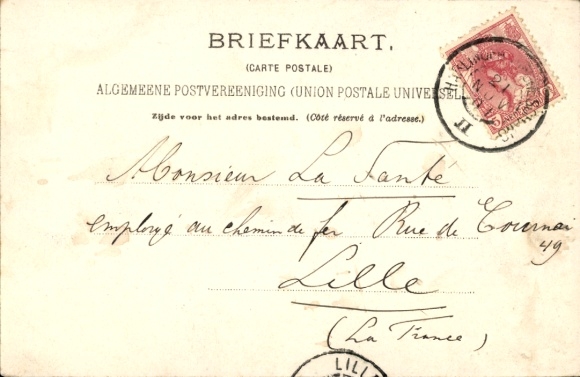 BRIEFKAART,
(CARTE POSTALE)
ALGEMEENE POSTVEREENIGING (UNION POSTALE UNIVERSEL
Zijde voor het adres bestemd. (Côté réservé à l'adresse.)
Monsieur La Fanté
employé au chemin de fer Rue de Tournai
49
Lille
(La France)
LILL